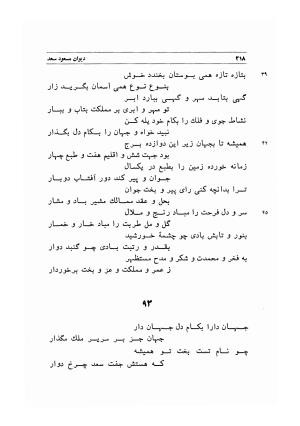 ۲۱۸ دیوان مسعود سعد
۳۹ بتازه تازه همی بوستان بخندد خوش
بنوع نوع همی آسمان بگرید زار
گهی بتابد مهر و گهی ببارد ابر
تو مهر و ابری بر مملکت بتاب و ببار
نشاط جوی و فلك را بکام خود یله کن
نبید خواه و جهان را بکام دل بگذار
۴۲ همیشه تا بجهان زیر این دوازده برج
بود جهت شش و اقلیم هفت و طبع چهار
زمانه خورده زمین را بطبع در یکسال
جوان و پیر کند دور آفتاب دوبار
ترا بدانچه کنی رای پیر و بخت جوان
بحل و عقد ممالك مشیر باد و مشار
۴۵ سر و دل فرحت را مباد رنج و ملال
گل و مل طربت را مباد خار و خمار
بنور و تابش بادی چو چشمهٔ خورشید
بقدر و رتبت بادی چو گنبد دوار
به فخر و محمدت و شکر و مدح مستظهر
ز عمر و مملکت و عز و بخت برخوردار
۹۳
جهان دارا بکام دل جهان دار
جهان جز بر سریر ملك مگذار
چو نام تست بخت تو همیشه
که هستش جفت سعد چرخ دوار